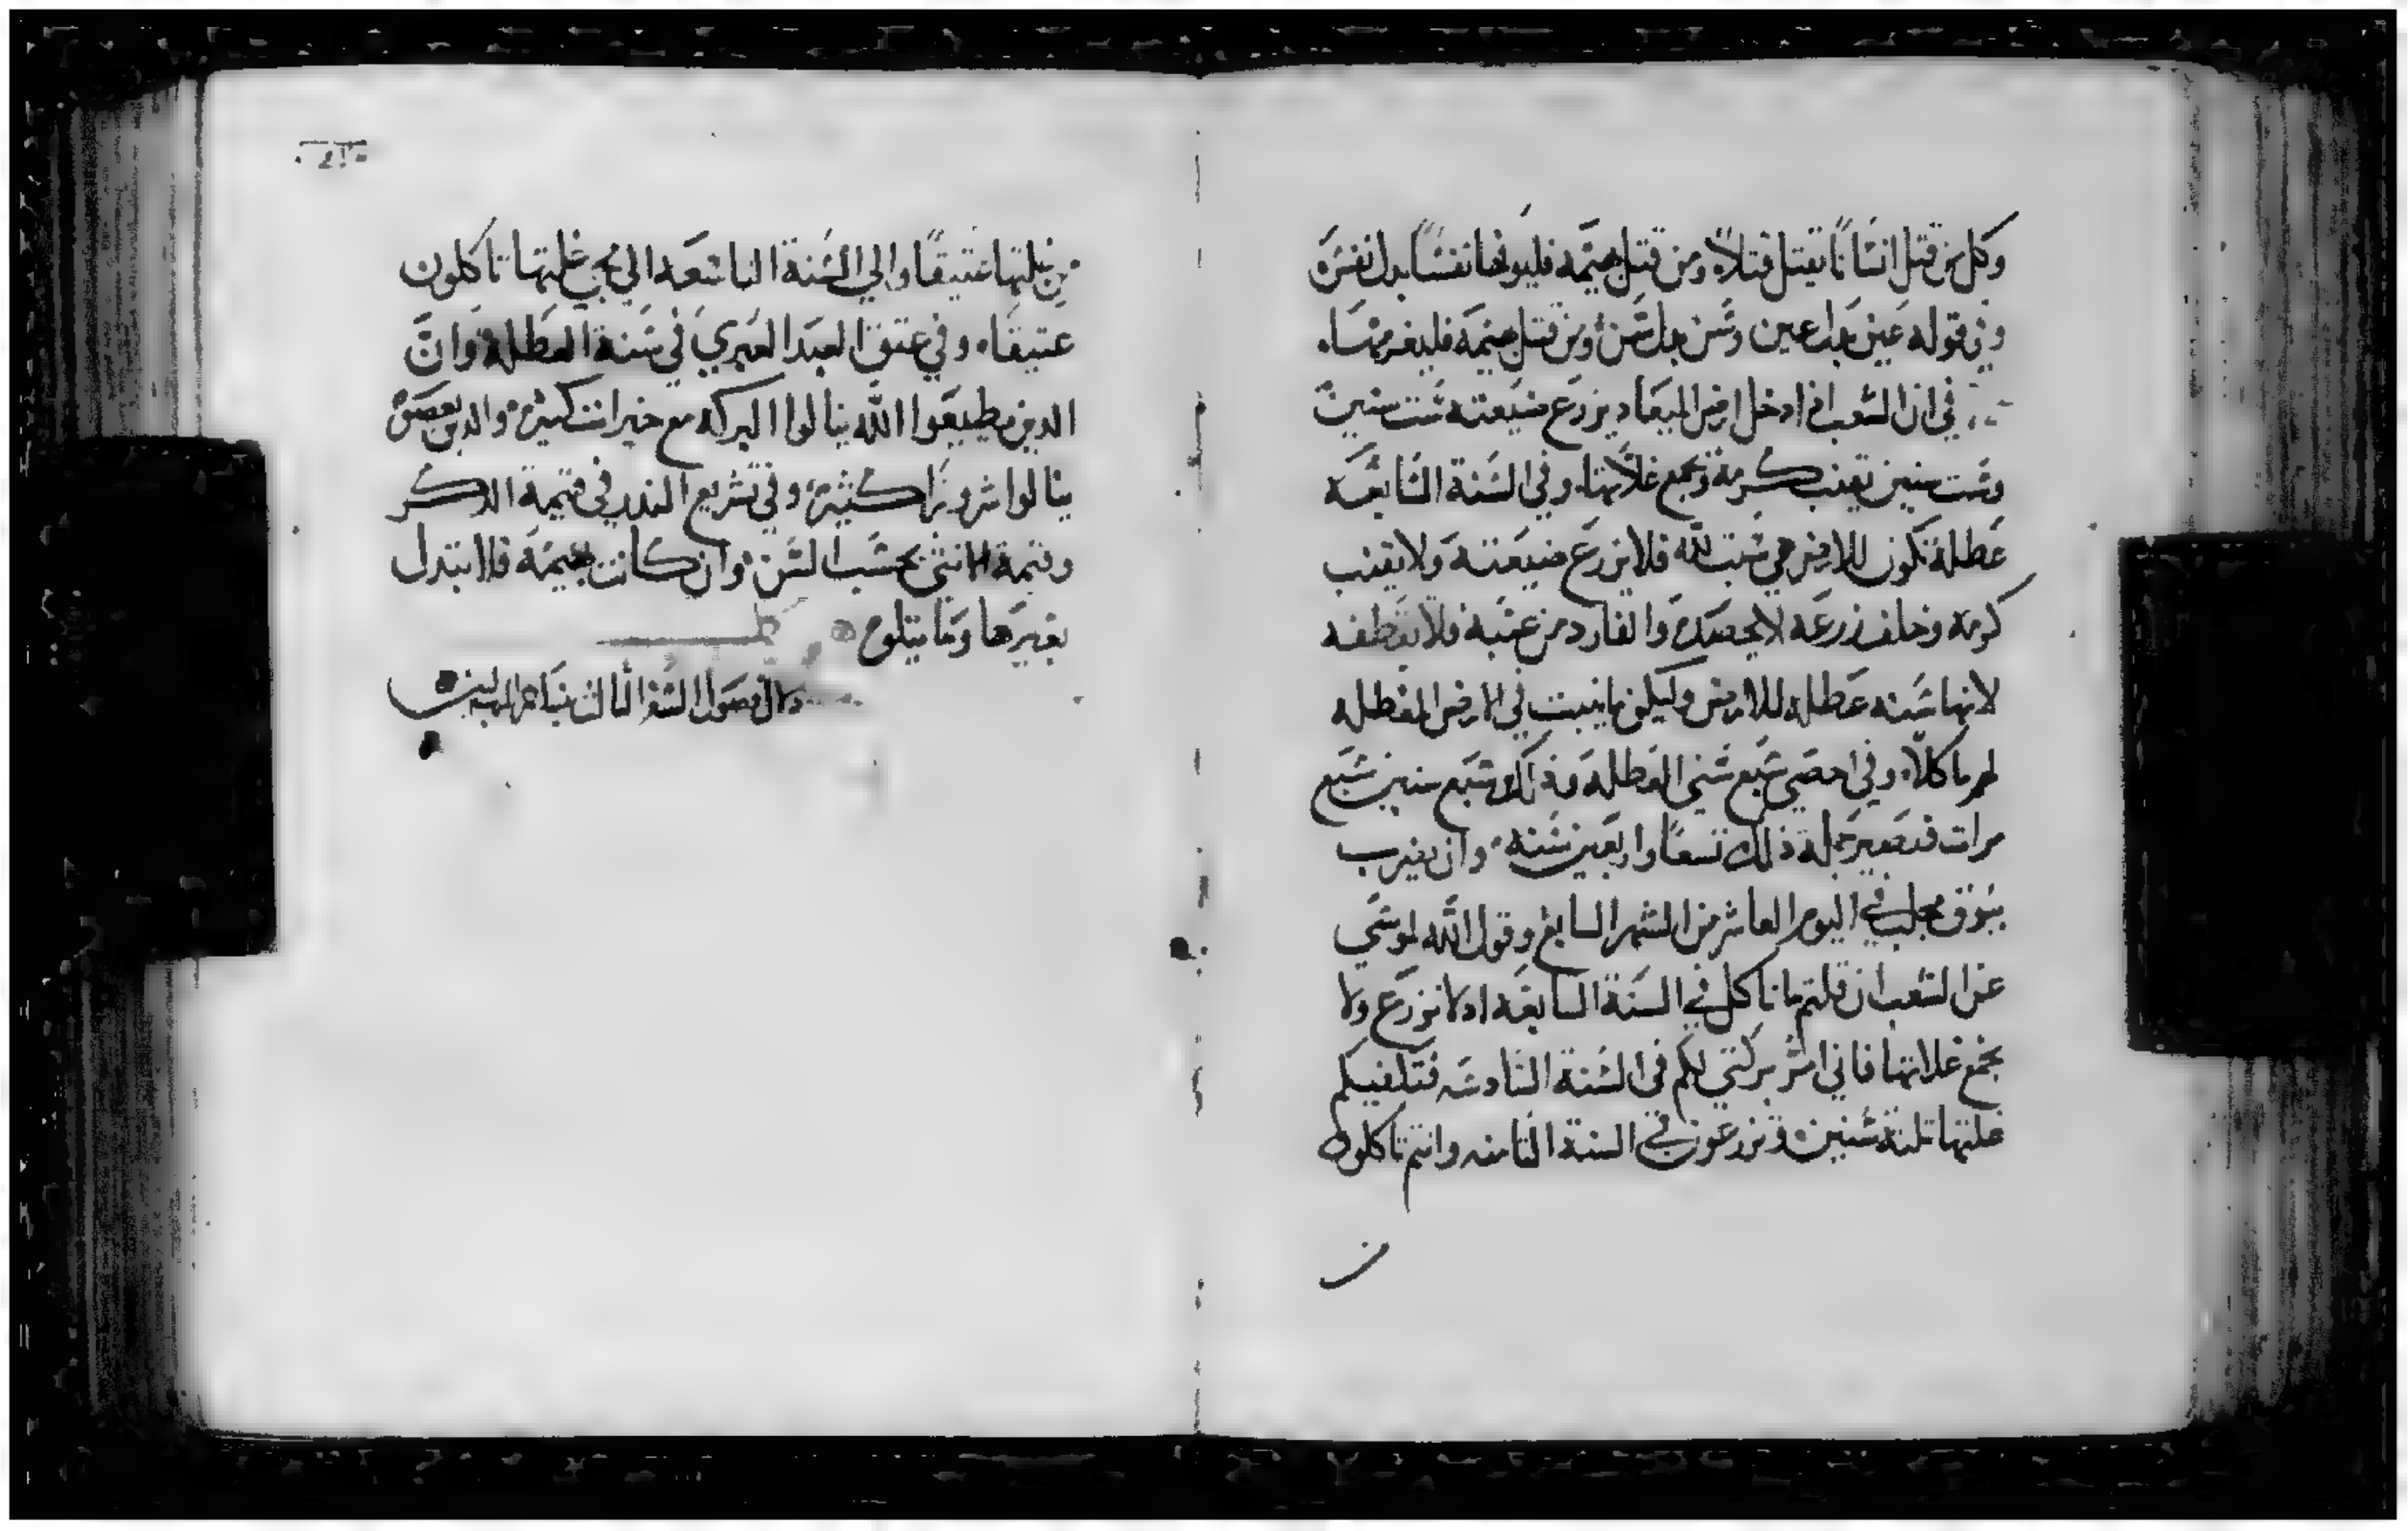 وكل من قتل انسانًا يقتل قتلاً ومن قتل بهيمه فليوفها نفسًا بدل نفس
وفي قوله عين بدل عين وسن بدل سن ومن قتل بهيمه فليغرمها
في ان الشعب اذا دخل ارض الميعاد يزرع ضيعته ست سنين
وست سنين تقضب كرمة وتجمع غلاتها وفي السنة السابعة
عطله تكون للارض هي سبت لله فلا يزرع ضيعته ولا يقضب
كرمه وخلف زرعه لا يحصده والفارد من عنبه فلا يقطفه
لانها سنه عطله للارض وليكن ما ينبت في الارض المعطله
لهم ماكلاً وفي احصى سبع سني العطله وذلك سبع سنين سبع
مرات فتصير جملة ذلك تسعًا واربعين سنه وان يضرب
ببوق مجلب في اليوم العاشر من الشهر السابع وقول الله لموسى
عن الشعب ان قلتم ما ناكل في السنة السابعه اذ لا نزرع ولا
نجمع غلاتها فاني امر بركتي لكم في السنة السادسه فتكفيكم
غلتها ثلثة سنين وتزرعون في السنة الثامنه وانتم تاكلون
من
من غلتها عتيقًا والي السنة التاسعه الي مجي غلتها تاكلون
عتيقًا وفي عتق العبد العبري في سنة العطله وان
الدين يطيعوا الله ينالوا البركه مع خيرات كثيره والدين يعصوه
ينالوا شرورًا كثيره وفي تشريع الندر في قيمة الدكر
وقيمة الانثى بحسب السن وان كانت بهيمة فلا تبدل
بغيرها وما يتلوه
فصول السفر الثالث